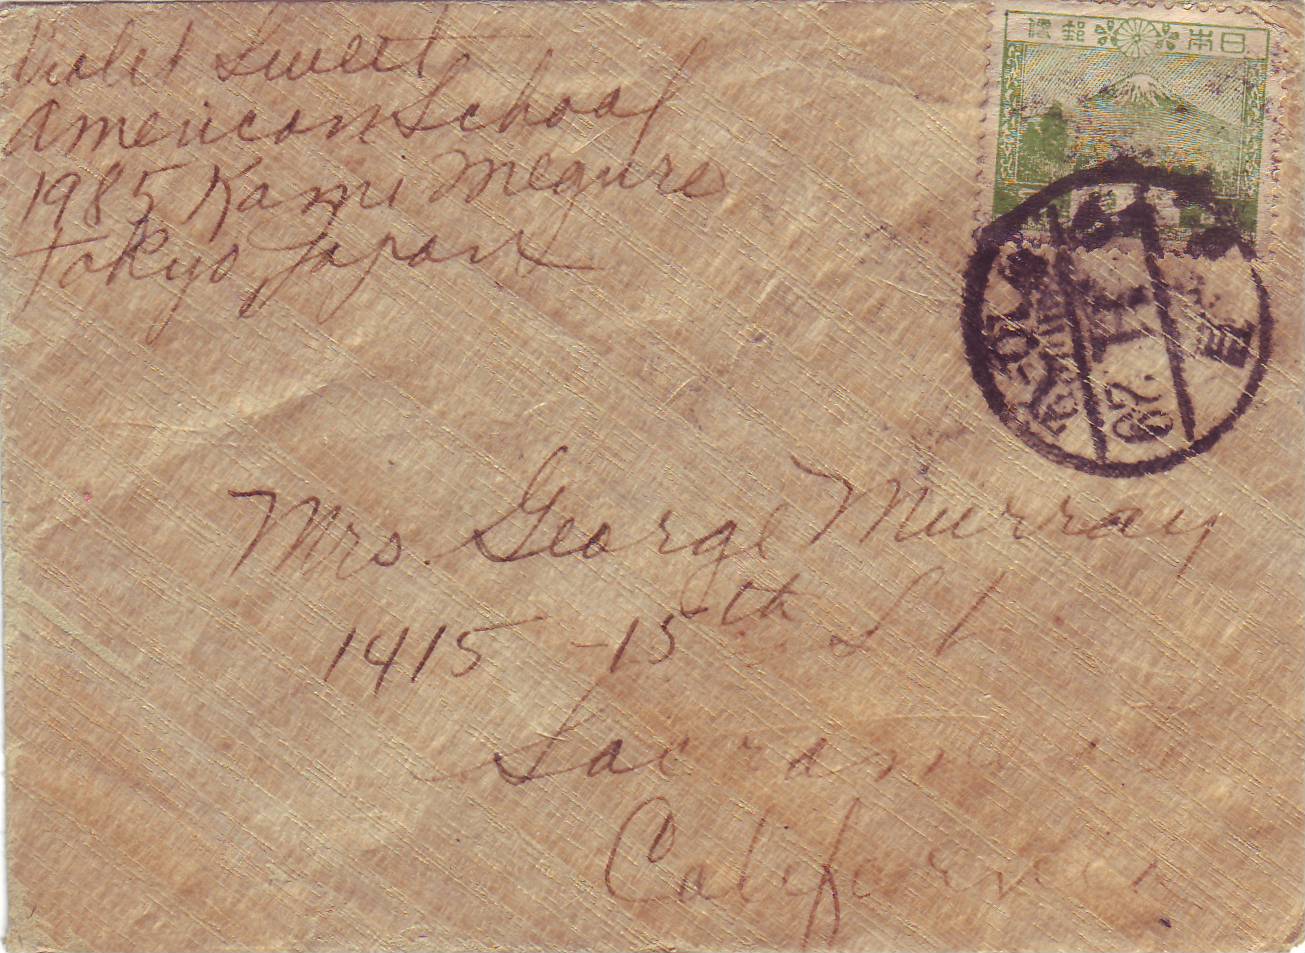 Violet Sweet
American School
1985 Kami Meguro
Tokyo Japan
日本郵便
Mrs George Murray
1415 - 15th St
Sacramento
California